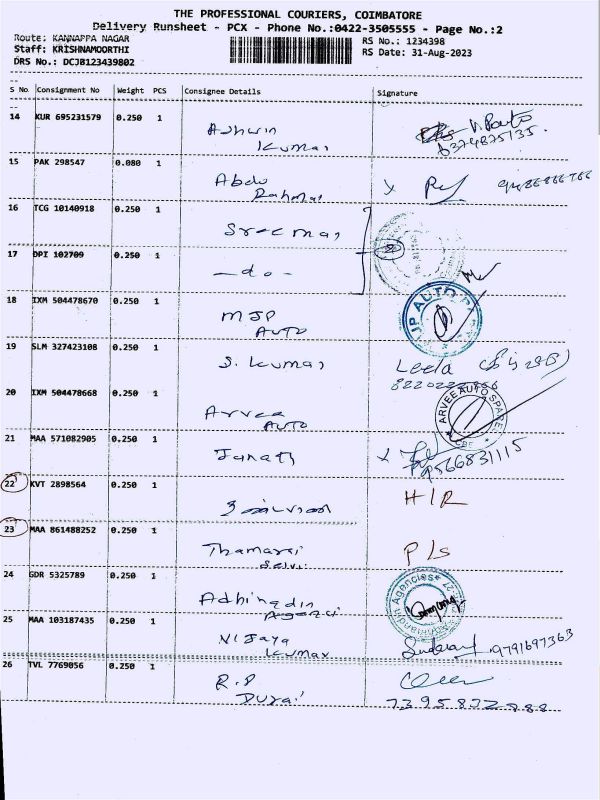 THE PROFESSIONAL COURIERS, COIMBATORE
Delivery Runsheet - PCX - Phone No.:0422-3505555 - Page No.:2
Route: KANNAPPA NAGAR
RS No.: 1234398
Staff: KRISHNAMOORTHI
RS Date: 31-Aug-2023
DRS No.: DCJB123439802
S No Consignment No Weight PCS Consignee Details Signature
14 KUR 695231579 0.250 1
Ashwin
Kumar
15 PAK 298547 0.080 1
Abdu
Rahman
x
16 TCG 10140918 0.250 1
Sree mas
17 DPI 102709 0.250 1
-do-
18 IXM 504478670 0.250 1
MJP
AUTO
JP AUTO
19 SLM 327423108 0.250 1
S. Kumar
Leela
20 IXM 504478668 0.250 1
Arvee
AUTO
ARVEE AUTO SPARES
CBE
21 MAA 571082905 0.250 1
Janath
x
9566831115
22 KVT 2898564 0.250 1
H/R
23 MAA 861488252 0.250 1
Thamarai
Selvi
P/S
24 GDR 5325789 0.250 1
Adhinadin
Agenci
Agencies
25 MAA 103187435 0.250 1
Vijaya
Kumar
9791697363
26 TVL 7769056 0.250 1
R.P
Durai